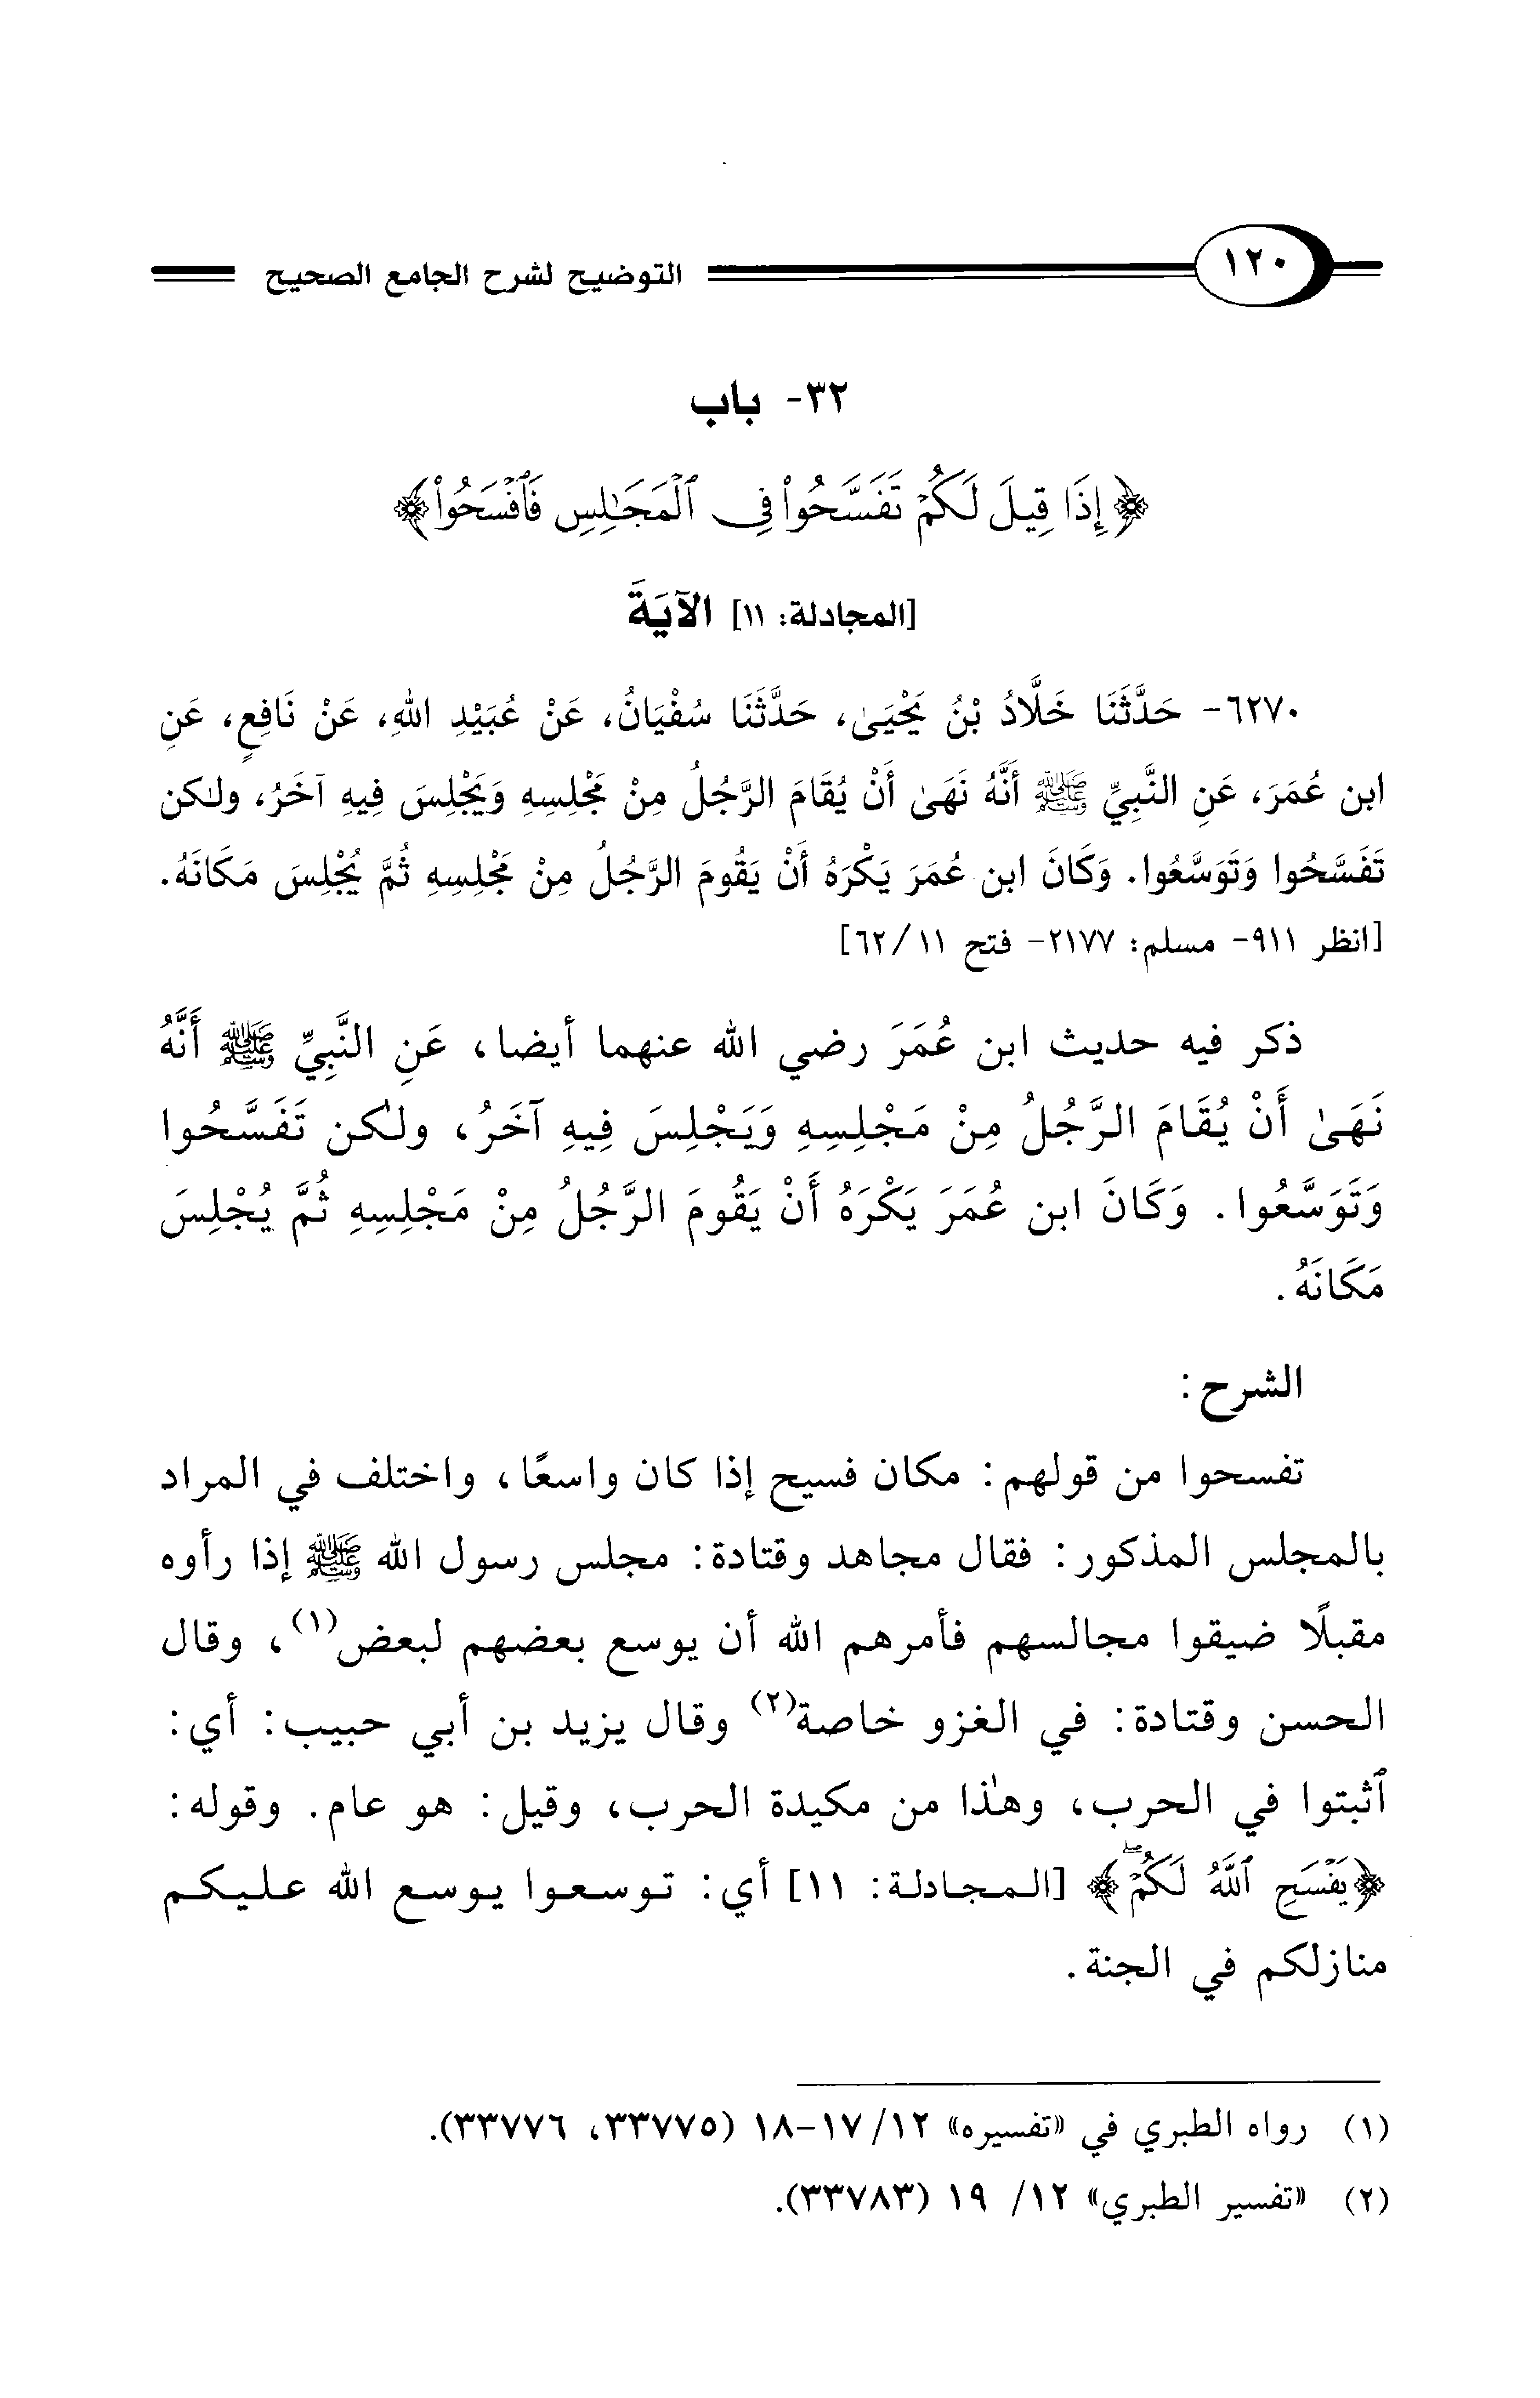 ١٢٠ التوضيح لشرح الجامع الصحيح
٣٢- باب
﴿إِذَا قِيلَ لَكُمْ تَفَسَّحُواْ فِى ٱلْمَجَٰلِسِ فَٱفْسَحُواْ﴾
[المجادلة: ١١] الآيَةَ
٦٢٧٠- حَدَّثَنَا خَلَّادُ بْنُ يَحْيَىٰ، حَدَّثَنَا سُفْيَانُ، عَنْ عُبَيْدِ اللهِ، عَنْ نَافِعٍ، عَنِ
ابن عُمَرَ، عَنِ النَّبِيِّ ﷺ أَنَّهُ نَهَىٰ أَنْ يُقَامَ الرَّجُلُ مِنْ مَجْلِسِهِ وَيَجْلِسَ فِيهِ آخَرُ، ولكن
تَفَسَّحُوا وَتَوَسَّعُوا. وَكَانَ ابن عُمَرَ يَكْرَهُ أَنْ يَقُومَ الرَّجُلُ مِنْ مَجْلِسِهِ ثُمَّ يُجْلِسَ مَكَانَهُ.
[انظر ٩١١- مسلم: ٢١٧٧- فتح ١١/ ٦٢]
ذكر فيه حديث ابن عُمَرَ رضي الله عنهما أيضا، عَنِ النَّبِيِّ ﷺ أَنَّهُ
نَهَىٰ أَنْ يُقَامَ الرَّجُلُ مِنْ مَجْلِسِهِ وَيَجْلِسَ فِيهِ آخَرُ، ولكن تَفَسَّحُوا
وَتَوَسَّعُوا. وَكَانَ ابن عُمَرَ يَكْرَهُ أَنْ يَقُومَ الرَّجُلُ مِنْ مَجْلِسِهِ ثُمَّ يُجْلِسَ
مَكَانَهُ.
الشرح:
تفسحوا من قولهم: مكان فسيح إذا كان واسعًا، واختلف في المراد
بالمجلس المذكور: فقال مجاهد وقتادة: مجلس رسول الله ﷺ إذا رأوه
مقبلًا ضيقوا مجالسهم فأمرهم الله أن يوسع بعضهم لبعض(١)، وقال
الحسن وقتادة: في الغزو خاصة(٢) وقال يزيد بن أبي حبيب: أي:
ٱثبتوا في الحرب، وهذا من مكيدة الحرب، وقيل: هو عام. وقوله:
﴿يَفْسَحِ ٱللَّهُ لَكُمْۖ﴾ [المجادلة: ١١] أي: توسعوا يوسع الله عليكم
منازلكم في الجنة.
(١) رواه الطبري في «تفسيره» ١٢/ ١٧-١٨ (٣٣٧٧٥، ٣٣٧٧٦).
(٢) «تفسير الطبري» ١٢/ ١٩ (٣٣٧٨٣).